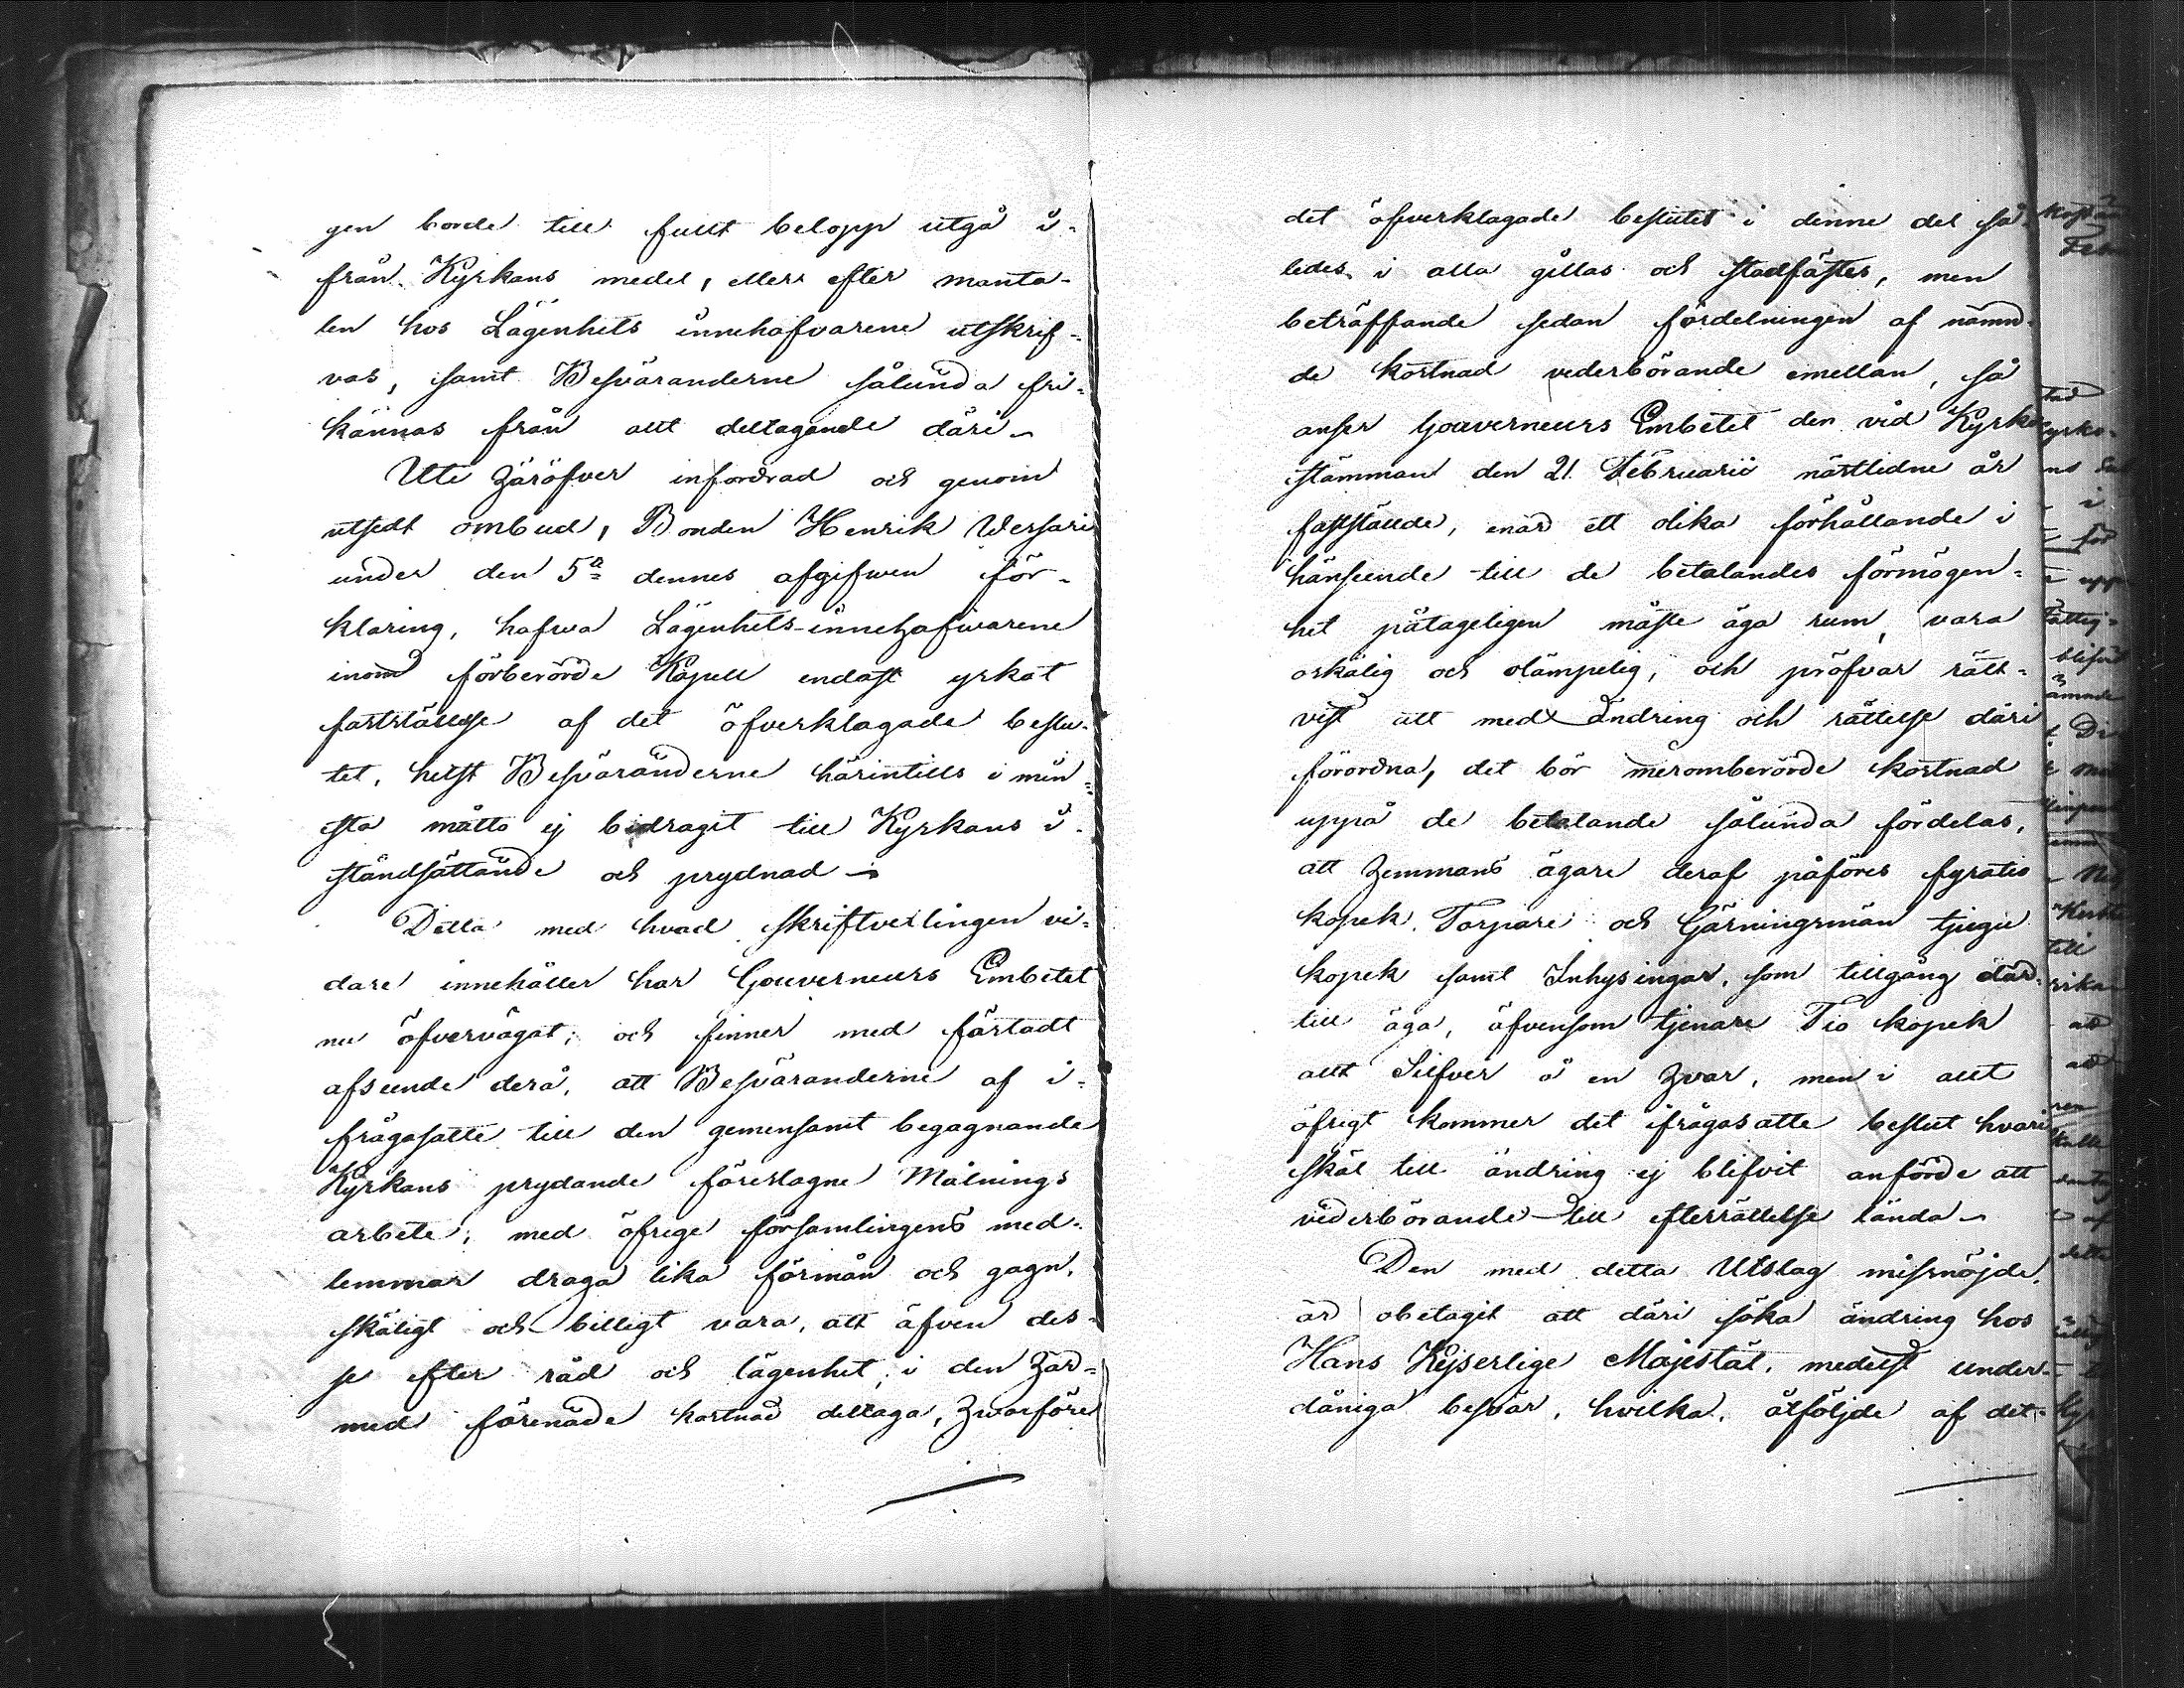 gen borde till fullt belopp utgå i-
från Kyrkans medel, eller efter manta-
len hos Lägenhets innehafvarene utskrif-
vas, samt Besväranderne sålunda fri-
kännas från allt deltagande däri
Uti häröfver infordrad och genom
utsedt ombud, Bonden Henrik Wessari
under den 5te dennes afgifwen för-
klaring, hafwa Lägenhets-innehafwarene
inom förberörde Kapell endast yrkat
fastställelse af det öfverklagade beslu-
tet, helst Besväranderne härintills i min-
sta måtto ej bidragit till Kyrkans i-
ståndsättande och prydnad
Detta med hvad skriftvexlingen vi-
dare innehåller har Gouverneurs Embetet
nu öfvervägat; och finner med fästadt
afseende derå, att Besväranderne af i-
frågasatte till den gemensamt begagnande
Kyrkans prydande föreslagne Målnings
arbete; med öfrige församlingens med-
lemmar draga lika förmån och gagn,
skäligt och billigt vara, att äfven des-
se efter råd och lägenhet, i den här-
med förenade kostnad deltaga, hvarföre
det öfwerklagade beslutet i denne del så-
ledes i alla gillas och stadfästes, men
beträffande sedan fördelningen af nämn-
de kostnad vederbörande emellan, så
anser Gouverneurs Embetet den vid Kyrko
stämman den 21. Februarii nästledne år
fastställde, enär ett olika förhållande i
hänseende till de betalandes förmögen-
het påtageligen måste äga rum, vara
oskälig och olämpelig, och pröfvar rätt-
vist att med ändring och rättelse däri
förordna, det bör meromberörde kostnad
uppå de betalande sålunda fördelas,
att hemmans ägare deraf påföres fyratio
kopek. Torpare och Gärningsmän tjugu
kopek samt Inhysingar, som tillgång där-
till äga, äfvensom tjenare Tio kopek
allt Silfver å en hvar, men i allt
öfrigt kommer det ifrågasatte beslut hvari
skäl till ändring ej blifvit anförde att
vederbörande till efterrättelse lända
Den med detta Utslag missnöjde,
är obetagit att däri söka ändring hos
Hans Kejserlige Majestät, medelst under-
dåniga besvär, hvilka, åtföljde af det-